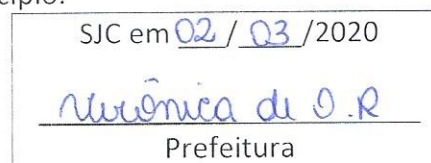 cípio.
SJC em 02 / 03 /2020
Verônica de O.R
Prefeitura